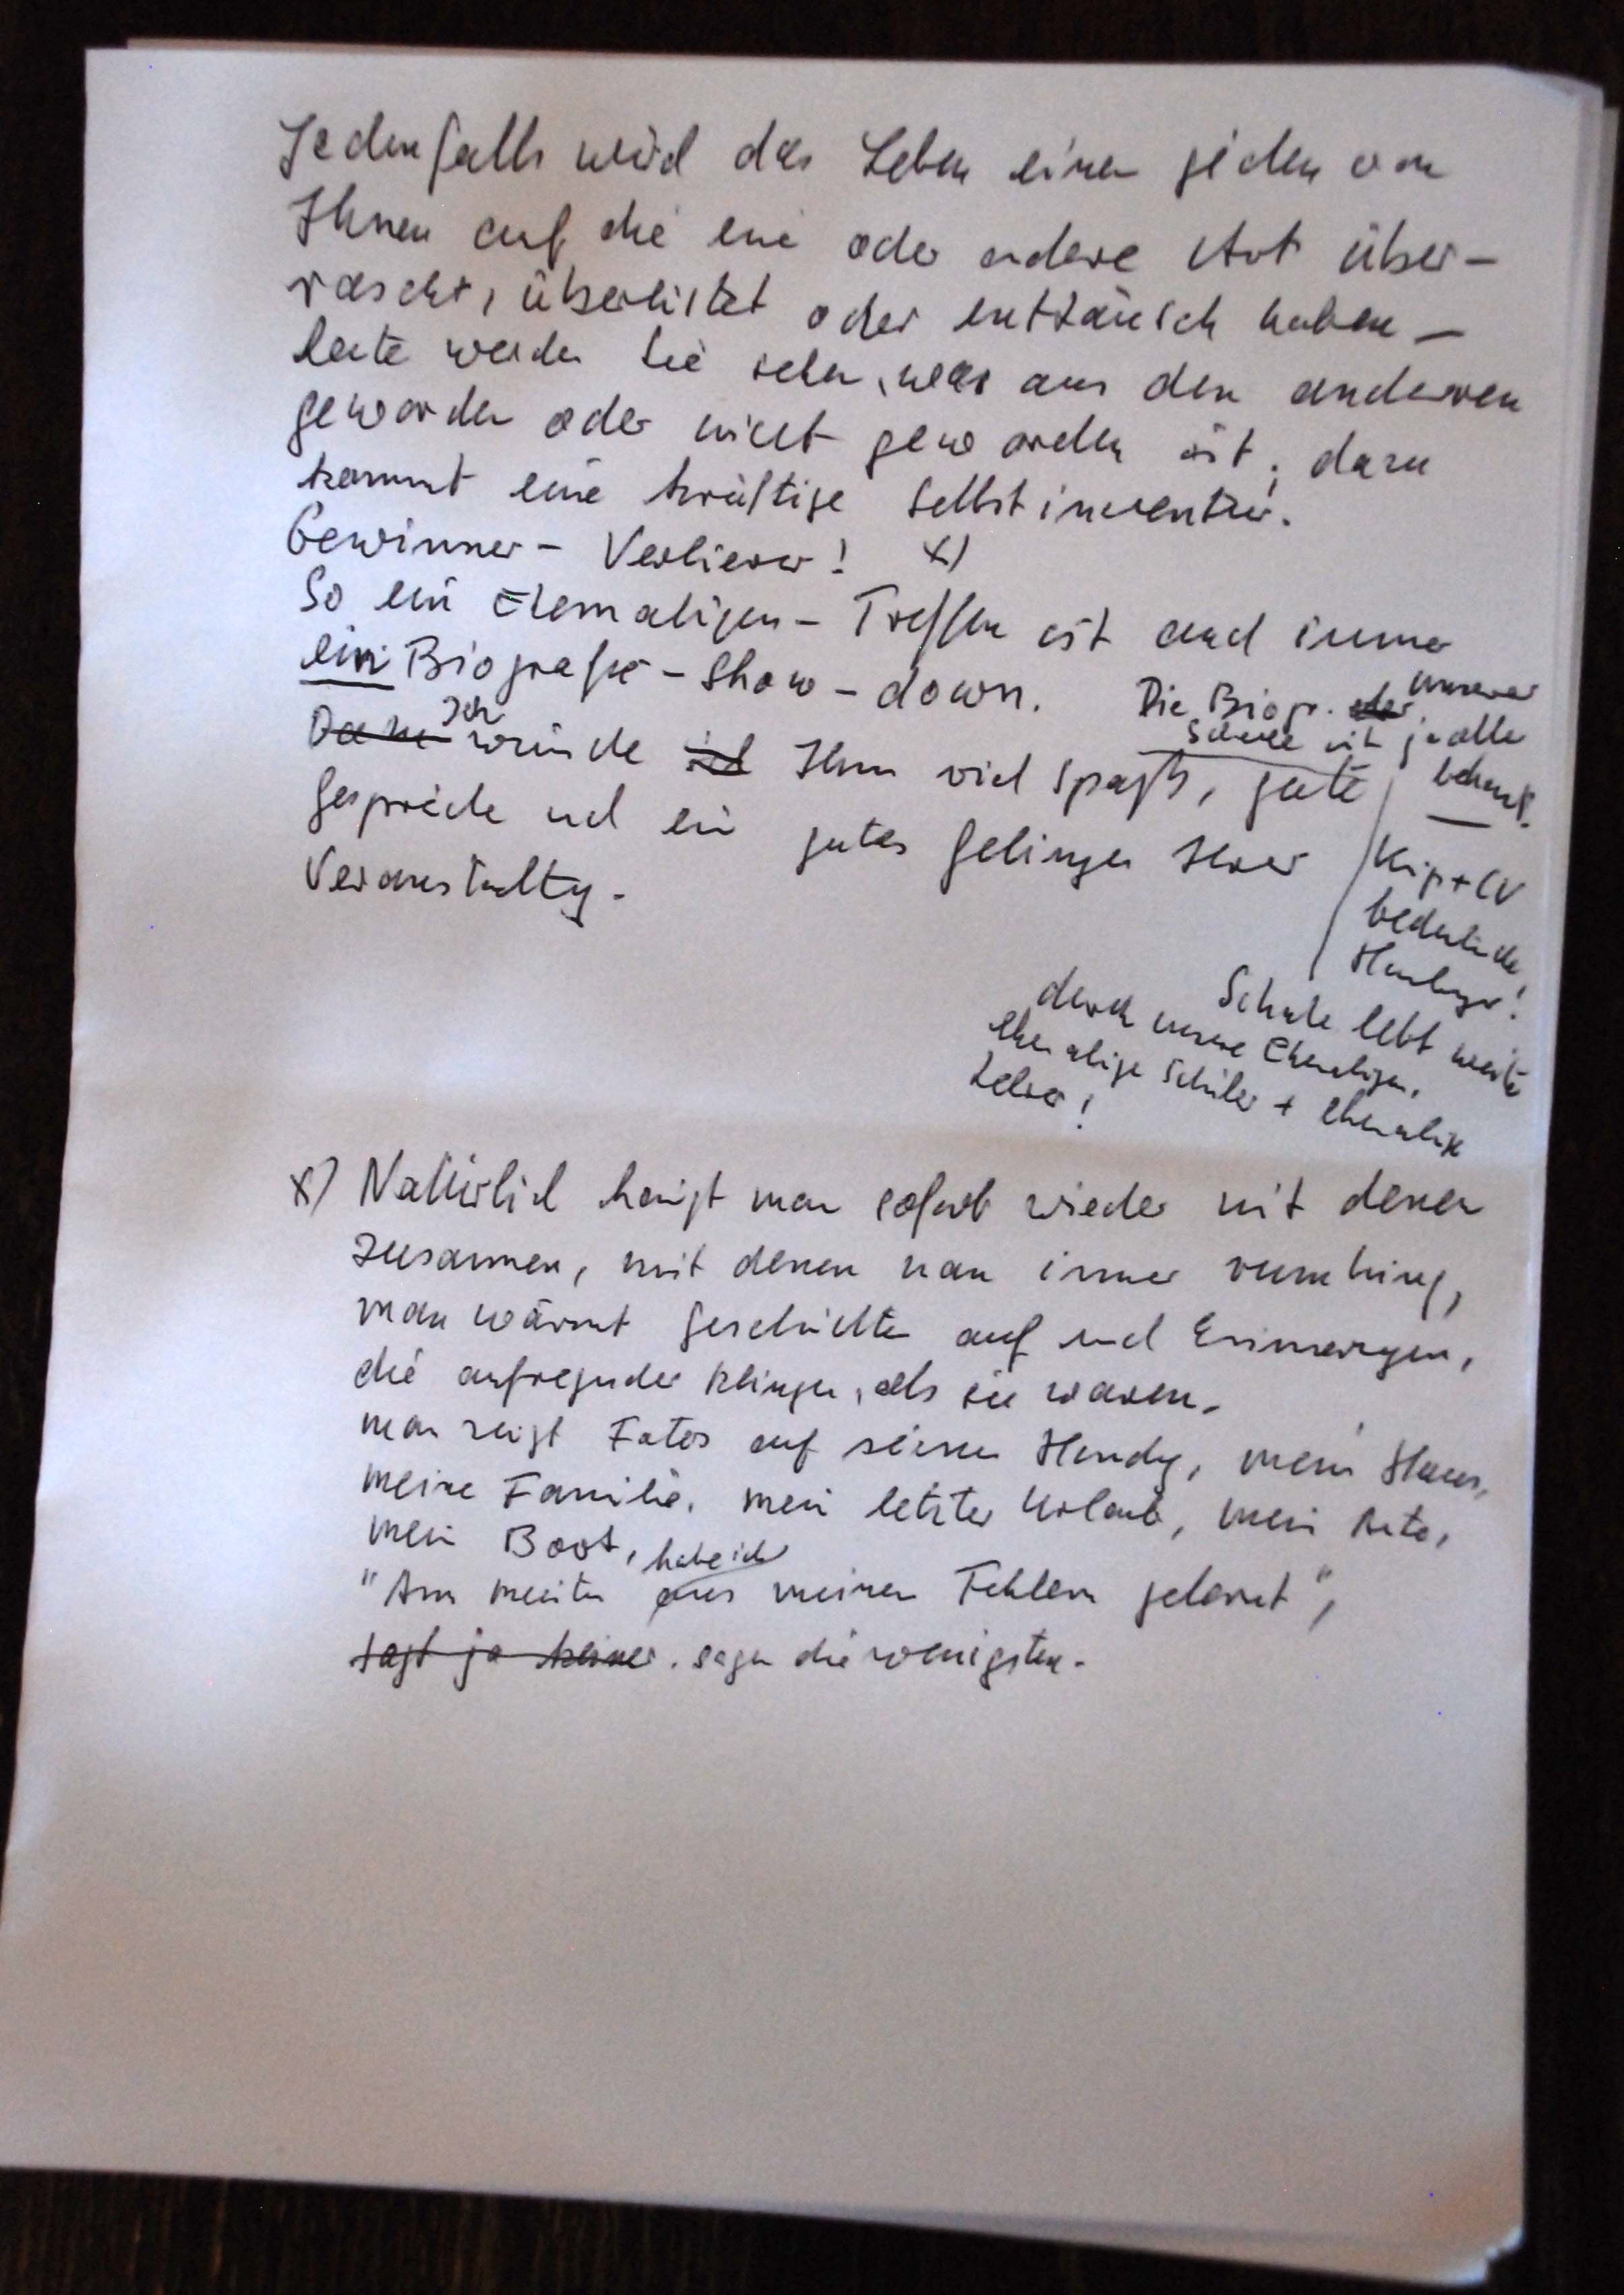 Jedenfalls wird das Leben einen jeden von
Ihnen auf die eine oder andere Art über-
rascht, überlistet oder enttäusch haben –
heute werden Sie sehen, was aus den anderen
geworden oder nicht geworden ist, dazu
kommt eine kräftige Selbstinventur.
Gewinner – Verlierer! x)
So ein Ehemaligen – Treffen ist auch immer
ein Biografie – Show – down.
Die Biogr. der unserer
Schule ist ja alle
bekannt.
Dann Ich wünsche ich Ihnen viel Spaß, gute
Gespräche und ein gutes Gelingen Ihrer
Veranstaltung.
+ CV
bedeutende
Hamburger!
Schule lebt weiter
durch unsere Ehemaligen,
ehemalige Schüler + ehemalige
Lehrer!
x) Natürlich hängt man sofort wieder mit denen
zusammen, mit denen man immer rumhing,
man wärmt Geschichten auf und Erinnerungen,
die aufregender klingen, als sie waren.
man zeigt Fotos auf seinem Handy, mein Haus,
meine Familie, mein letzter Urlaub, mein Auto,
mein Boot,
"Am meisten habe ich aus meinen Fehlern gelernt",
sagt ja keiner. sagen die wenigsten.